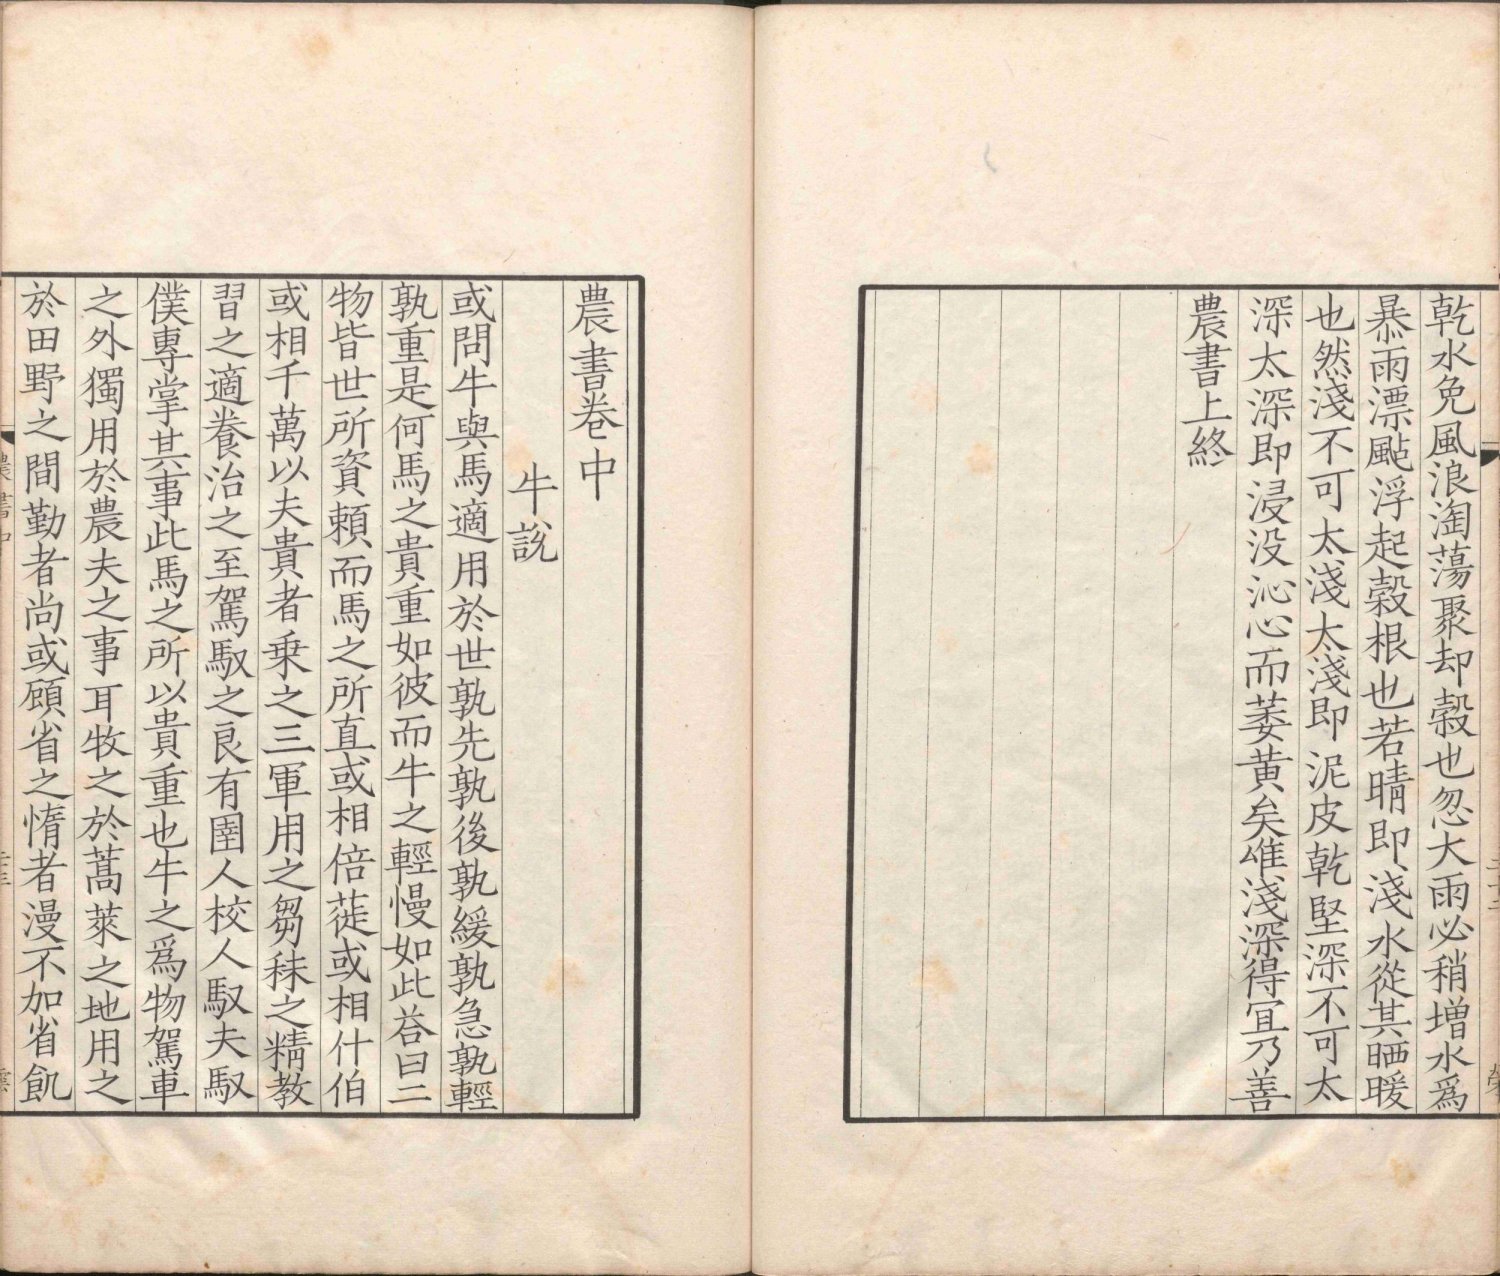 乾水免風浪淘蕩聚却榖也忽大雨必稍增水爲
暴雨漂颭浮起榖根也若晴即淺水從其晒暖
也然淺不可太淺太淺即泥皮乾堅深不可太
深太深即浸没沁心而萎黄矣惟淺深得宜乃善
農書上終
農書卷中
牛説
或問牛與馬適用於世孰先孰後孰緩孰急孰輕
孰重是何馬之貴重如彼而牛之輕慢如此荅曰二
物皆世所資賴而馬之所直或相倍蓰或相什伯
或相千萬以夫貴者乗之三軍用之芻秣之精教
習之適養治之至駕馭之良有圉人校人馭夫馭
僕專掌其事此馬之所以貴重也牛之爲物駕車
之外獨用於農夫之事耳牧之於蒿萊之地用之
於田野之間勤者尚或顧省之惰者漫不加省飢